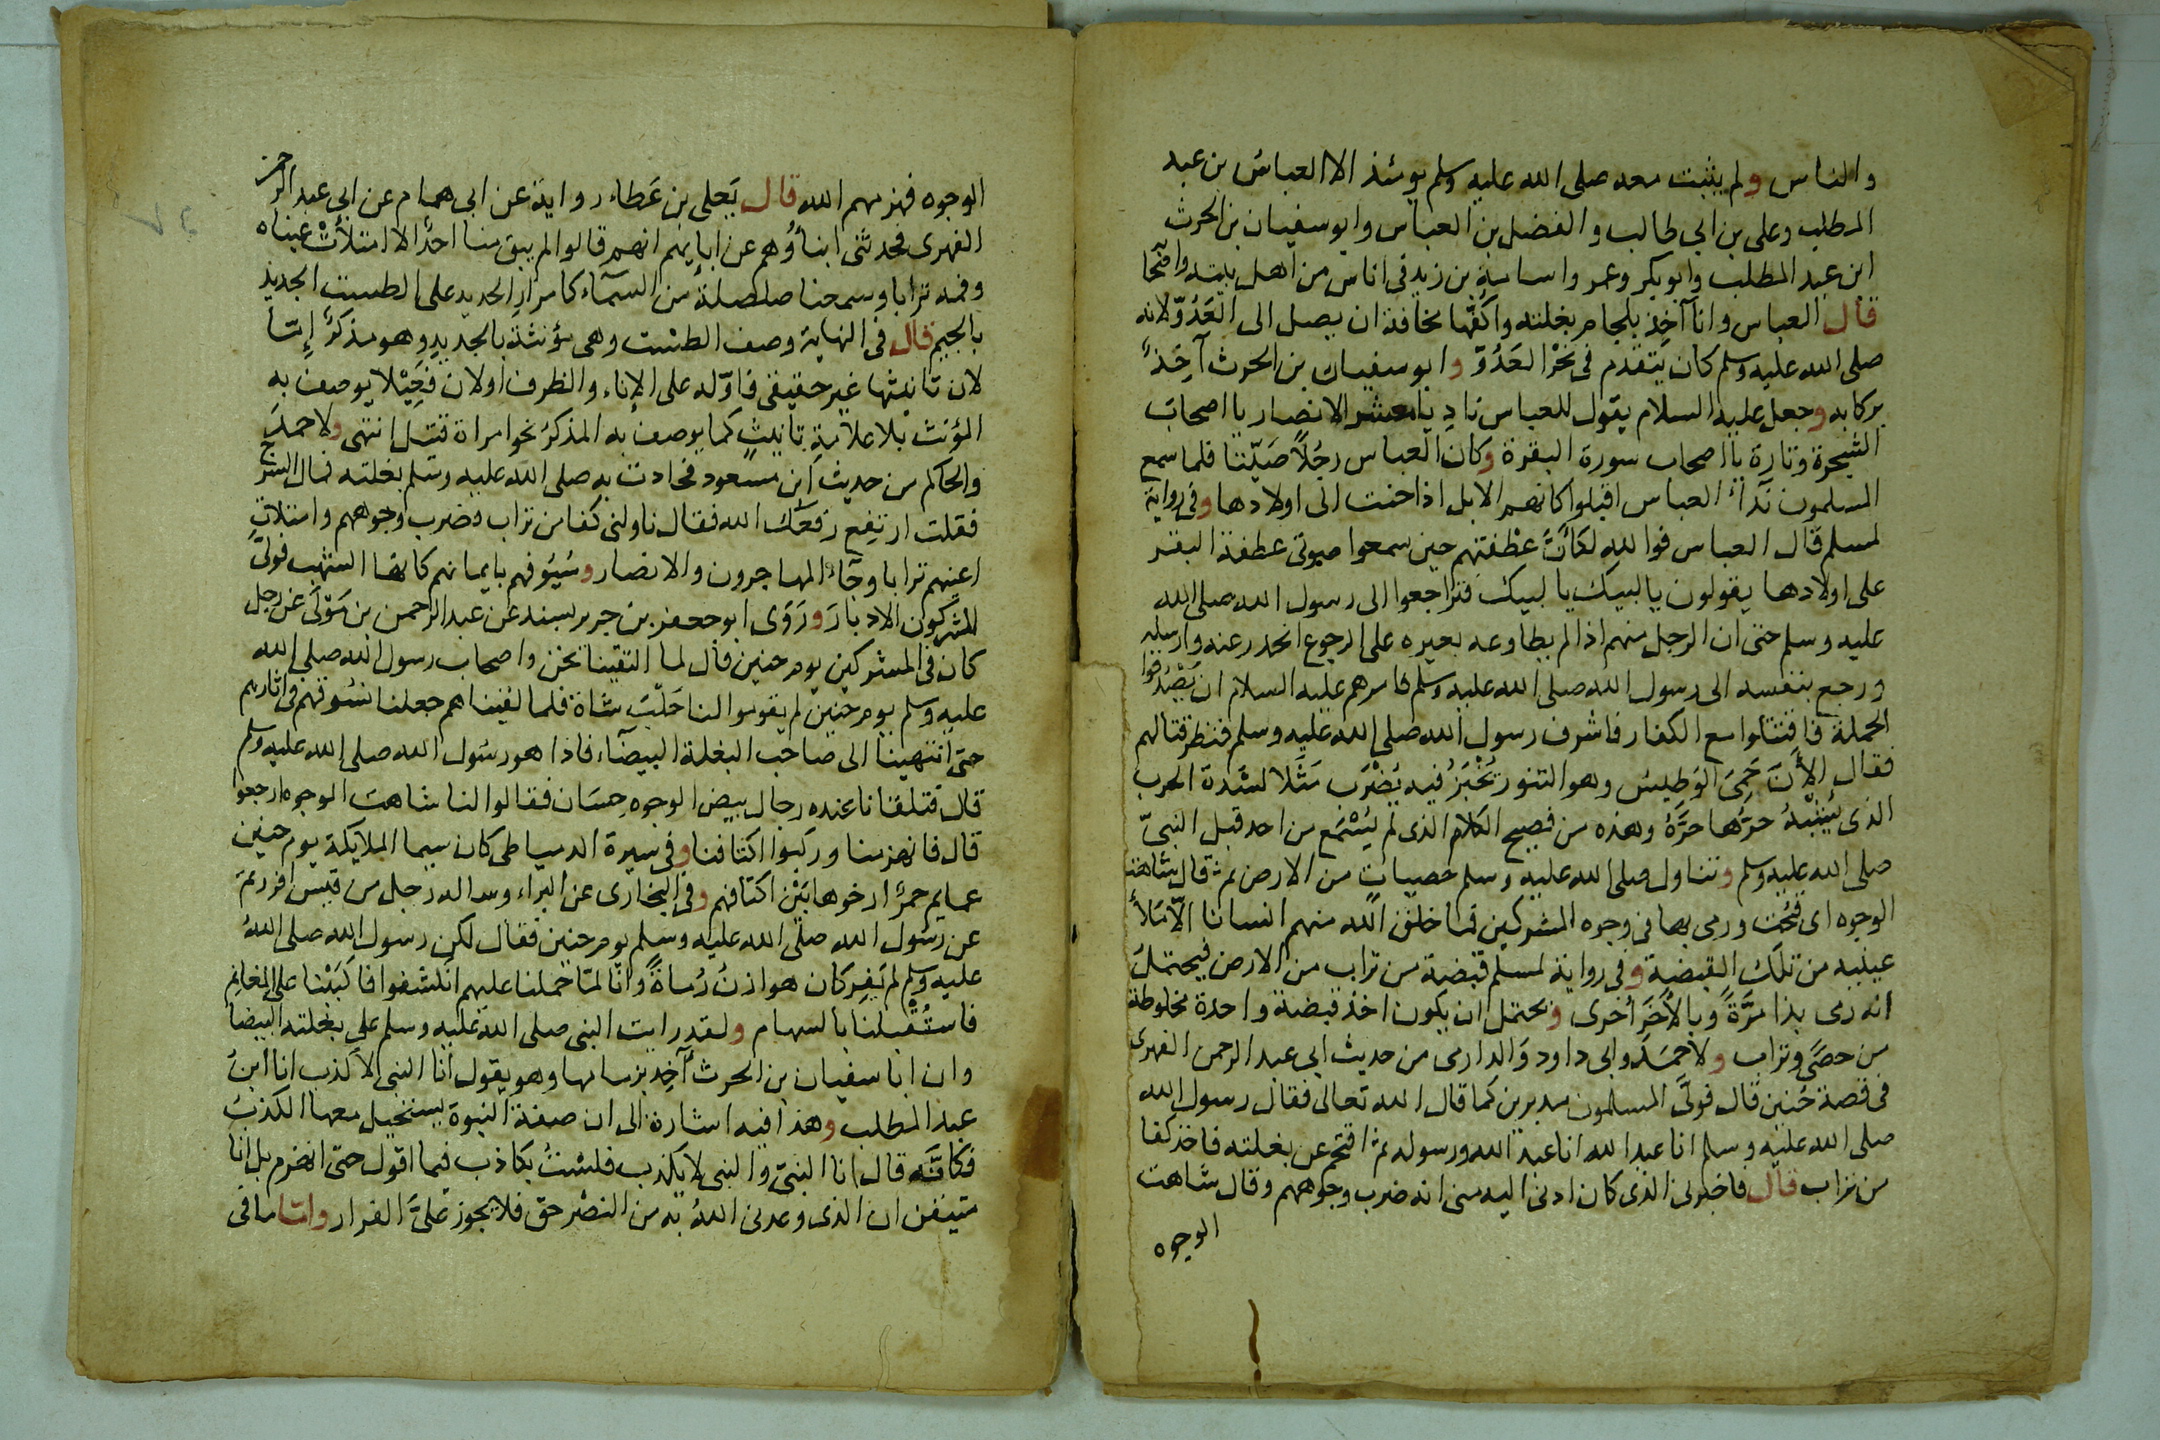 والناس ولم يثبت معه صلى الله عليه وسلم يومئذ الا العباس بن عبد
المطلب وعلي بن ابي طالب والفضل بن العباس وابو سفيان بن الحرث
ابن عبد المطلب وابو بكر وعمر واسامة بن زيد في اناس من اهل بيته واصحابه
قال العباس وانا آخذ بلجام بغلته واكفها مخافة ان يصل الى العدو لانه
صلى الله عليه وسلم كان يتقدم في نحر العدو وابو سفيان بن الحرث آخذ
بركابه وجعل عليه السلام يقول للعباس ناد يا معشر الانصار يا اصحاب
الشجرة وتارة يا اصحاب سورة البقرة وكان العباس رجلا صيتا فلما سمع
المسلمون نداء العباس اقبلوا كانهم الابل اذا حنت الى اولادها وفي رواية
لمسلم قال العباس فوالله لكأن عطفتهم حين سمعوا صوتي عطفة البقر
على اولادها يقولون يا لبيك يا لبيك فتراجعوا الى رسول الله صلى الله
عليه وسلم حتى ان الرجل منهم اذا لم يطاوعه بعيره على الرجوع انحدر عنه وارسله
ورجع بنفسه الى رسول الله صلى الله عليه وسلم فامرهم عليه السلام ان يصدقوا
الحملة فاقتتلوا مع الكفار فاشرف رسول الله صلى الله عليه وسلم فنظر قتالهم
فقال الأن حَمِيَ الوَطيس وهو التنور يُخْبَزُ فيه يُضْرَب مَثَلا لشدة الحرب
الذي يُشْبِهُ حرُّها حرَّهُ وهذه من فصيح الكلام الذي لم يُسْمَع من احد قبل النبيّ
صلى الله عليه وسلم وتناول صلى الله عليه وسلم حصيات من الارض ثم قال شاهت
الوجوه اى قبحت ورمى بها في وجوه المشركين فما خلق الله منهم انسانا الا ملأ
عينيه من تلك القبضة وفي رواية لمسلم قبضة من تراب من الارض فيحتمل
انه رمى بذا مَرَّةً وبالأخَر أخرى ويحتمل ان يكون اخذ قبضة واحدة مخلوطة
من حصًى وتراب ولاحمد وابي داود والدارمي من حديث ابي عبد الرحمن الفهرى
في قصة حُنين قال فولى المسلمون مدبرين كما قال الله تعالى فقال رسول الله
صلى الله عليه وسلم انا عبد الله انا عبد الله ورسوله ثم اقتحم عن بغلته فاخذ كفا
من تراب قال فاخبرني الذى كان ادنى اليه منى انه ضرب وجوههم وقال شاهت
الوجوه
الوجوه فهزمهم الله قال يَعلى بن عَطاء رواية عن ابي همام عن ابي عبد الرحمن
الفهرى فحدثنى ابناؤُهم عن ابايهم انهم قالوا لم يبق منا احد الا امتلأت عيناه
وفمه ترابا وسمعنا صلصلة من السماء كامرار الحديد على الطست الجديد
بالجيم قال في النهاية وصف الطشت وهى مؤنثة بالجديد وهو مذكر إمّا
لان تانيثها غير حقيقى فاوّله على الإناء والظرف اولان فَعِيْلا يوصف به
المؤنث بلا علامة تانيث كما يوصف به المذكر نحو امراة قتيل انتهى ولاحمد
والحاكم من حديث ابن مسعود فحادت به صلى الله عليه وسلم بغلته فمال السرج
فقلت ارتفِع رفعَكَ الله فقال ناولنى كفا من تراب فضرب وجوههم وامتلات
اعينهم ترابا وجاء المهاجرون والانصار وسُيُوفهم بايمانهم كانها الشهب فولّى
المشركون الادبار وروى ابو جعفر بن جرير بسند عن عبد الرحمن بن مَوْلَى عن رجل
كان في المشركين يوم حنين قال لما التقينا نحن واصحاب رسول الله صلى الله
عليه وسلم يوم حنين لم يقوموا لنا حَلْبَ شاة فلما لقيناهم جعلنا نسُوقهم في اثارهم
حتى انتهينا الى صاحب البغلة البيضاء فاذا هو رسول الله صلى الله عليه وسلم
قال فتلقانا عنده رجال بيض الوجوه حِسَان فقالوا لنا شاهت الوجوه ارجعوا
قال فانهزمنا وركبوا اكتافنا وفي سيرة الدمياطى كان سيما الملايكة يوم حنين
عمايم حمرًا ارخوها بَيْن اكتافهم وفي البخارى عن البراء وساله رجل من قيس افررتم
عن رسول الله صلّى الله عليه وسلم يوم حنين فقال لكن رسول الله صلى الله
عليه وسلم لم يَفِر كان هوازنُ رُماةً وانّا لمّا حملنا عليهم انكشفوا فاكبَبْنا على المغانم
فاستُقْبلنا بالسهام ولقد رايت النبى صلى الله عليه وسلم على بغلته البيضا
وان ابا سفيان بن الحرث آخِذ بزمامها وهو يقول أنا النبى لا كذب انا ابنُ
عبد المطلب وهذا فيه اشارة الى ان صفة النبوة يستحيل معها الكذبُ
فكانه قال انا النبيّ والنبى لا يكذب فلستُ بكاذب فيما اقول حتى انهزم بل انا
متيقن ان الذى وعدنى اللهُ به من النصْر حق فلا يجوز عَلَيَّ الفرار وامّا ما في